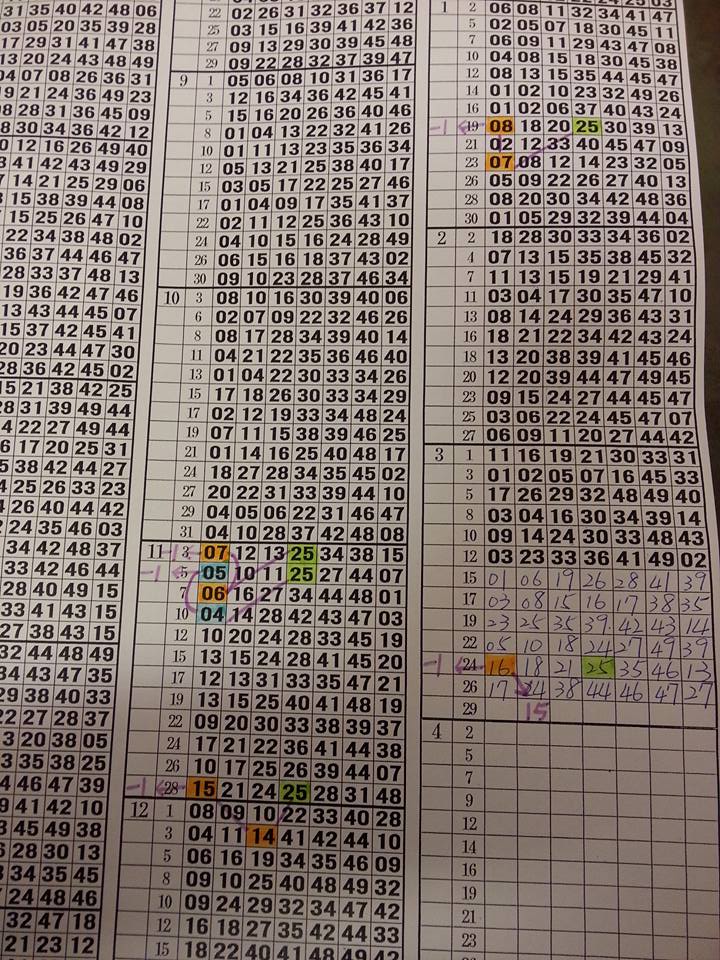 31 35 40 42 48 06
03 05 20 35 39 28
17 29 31 41 47 38
13 20 24 43 48 49
04 07 08 26 36 31
19 21 24 36 49 23
08 28 31 36 45 09
8 30 34 36 42 12
0 12 16 26 49 40
3 41 42 43 49 29
7 14 21 25 29 06
3 15 38 39 44 08
7 15 25 26 47 10
22 34 38 48 02
36 37 44 46 47
28 33 37 48 13
19 36 42 47 46
13 43 44 45 07
15 37 42 45 41
20 23 44 47 30
28 36 42 45 02
15 21 38 42 25
28 31 39 49 44
4 22 27 49 44
6 17 20 25 31
5 38 42 44 27
4 25 26 33 23
4 26 40 44 42
2 24 35 46 03
34 42 48 37
33 42 46 44
28 40 49 15
33 41 43 15
27 38 43 15
32 44 48 49
34 43 47 35
29 38 40 33
22 27 28 37
3 20 38 05
33 35 38 25
4 46 47 39
9 41 42 10
3 45 49 38
6 28 30 13
8 34 35 45
7 24 48 46
32 47 18
21 23 12
22 02 26 31 32 36 37 12
25 03 15 16 39 41 42 36
27 09 13 29 30 39 45 48
29 09 22 28 32 37 39 47
9 1 05 06 08 10 31 36 17
3 12 16 34 36 42 45 41
5 15 16 20 26 36 40 46
8 01 04 13 22 32 41 26
10 01 11 13 23 35 36 34
12 05 13 21 25 38 40 17
15 03 05 17 22 25 27 46
17 01 04 09 17 35 41 37
22 02 11 12 25 36 43 10
24 04 10 15 16 24 28 49
26 06 15 16 18 37 43 02
30 09 10 23 28 37 46 34
10 3 08 10 16 30 39 40 06
6 02 07 09 22 32 46 26
8 08 17 28 34 39 40 14
11 04 21 22 35 36 46 40
13 01 04 22 30 33 34 26
15 17 18 26 30 33 34 29
17 02 12 19 33 34 48 24
19 07 11 15 38 39 46 25
21 01 14 16 25 40 48 17
24 18 27 28 34 35 45 02
27 20 22 31 33 39 44 10
29 04 05 06 22 31 46 47
31 04 10 28 37 42 48 08
11 -1 3 07 12 13 25 34 38 15
-1 5 05 10 11 25 27 44 07
7 06 16 27 34 44 48 01
10 04 14 28 42 43 47 03
12 10 20 24 28 33 45 19
15 13 15 24 28 41 45 20
17 12 13 31 33 35 47 21
19 13 15 25 40 41 48 19
22 09 20 30 33 38 39 37
24 17 21 22 36 41 44 38
26 10 17 25 26 39 44 07
-1 28 15 21 24 25 28 31 48
12 1 08 09 10 22 33 40 28
3 04 11 14 41 42 44 10
5 06 16 19 34 35 46 09
8 09 10 25 40 48 49 32
10 09 24 29 32 34 47 42
12 16 18 27 35 42 44 33
15 18 22 40 41 48 49 42
1 2 06 08 11 32 34 41 47
5 02 05 07 18 30 45 11
7 06 09 11 29 43 47 08
10 04 08 15 18 30 45 38
12 08 13 15 35 44 45 47
14 01 02 10 23 32 49 26
16 01 02 06 37 40 43 24
-1 19 08 18 20 25 30 39 13
21 02 12 33 40 45 47 09
23 07 08 12 14 23 32 05
26 05 09 22 26 27 40 13
28 08 20 30 34 42 48 36
30 01 05 29 32 39 44 04
2 2 18 28 30 33 34 36 02
4 07 13 15 35 38 45 32
7 11 13 15 19 21 29 41
11 03 04 17 30 35 47 10
13 08 14 24 29 36 43 31
16 18 21 22 34 42 43 24
18 13 20 38 39 41 45 46
20 12 20 39 44 47 49 45
23 09 15 24 27 44 45 47
25 03 06 22 24 45 47 07
27 06 09 11 20 27 44 42
3 1 11 16 19 21 30 33 31
3 01 02 05 07 16 45 33
5 17 26 29 32 48 49 40
8 03 04 16 30 34 39 14
10 09 14 24 30 33 48 43
12 03 23 33 36 41 49 02
15 01 06 19 26 28 41 39
17 03 08 15 16 17 38 35
19 23 25 35 39 42 43 14
22 05 10 18 24 27 49 39
-1 24 16 18 21 25 35 46 13
26 17 24 38 44 46 47 27
29 15
4 2
5
7
9
12
14
16
19
21
23